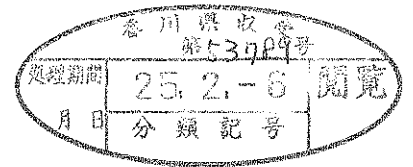 香川県収受
第53789号
処理期間
25. 2. -6
閲覧
月 日
分類記号